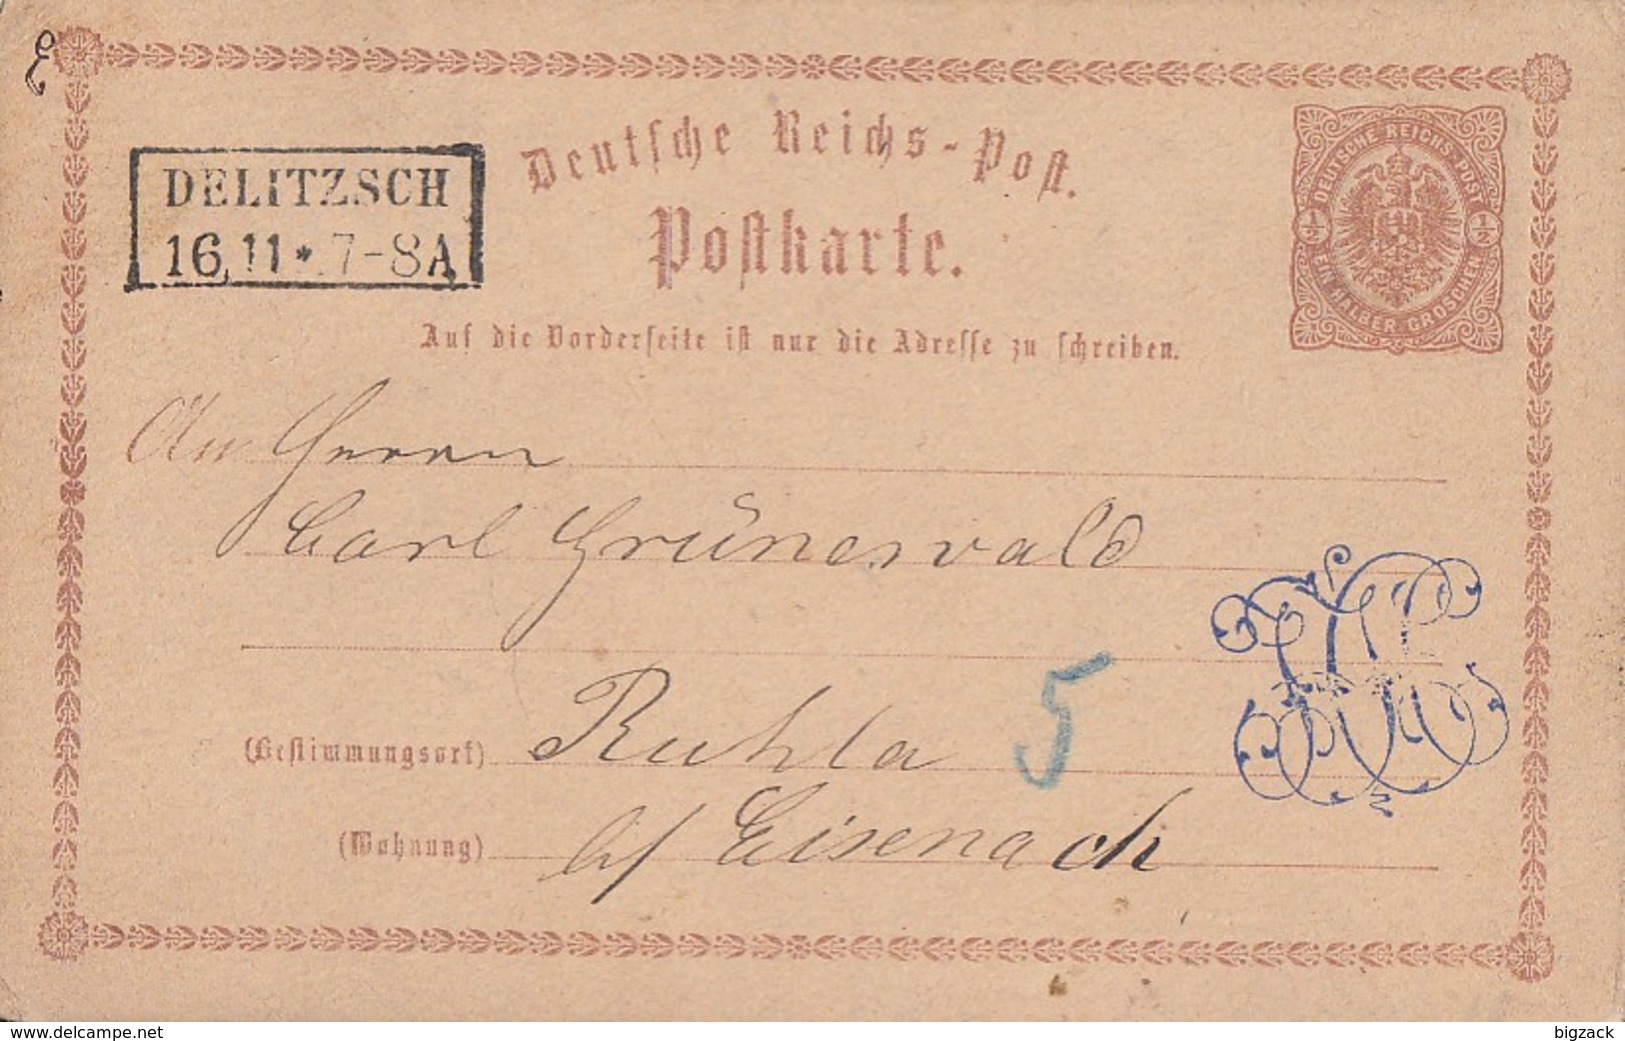 DELITZSCH
16,11 * 7-8A
Deutsche Reichs-Post.
Postkarte.
DEUTSCHE REICHS-POST
1/2 1/2
EIN HALBER GROSCHEN
Auf die Vorderseite ist nur die Adresse zu schreiben.
An Herrn
Carl Grüneswald
(Bestimmungsort) Ruhla
5
(Wohnung) b/ Eisenach
www.delcampe.net
bigzack